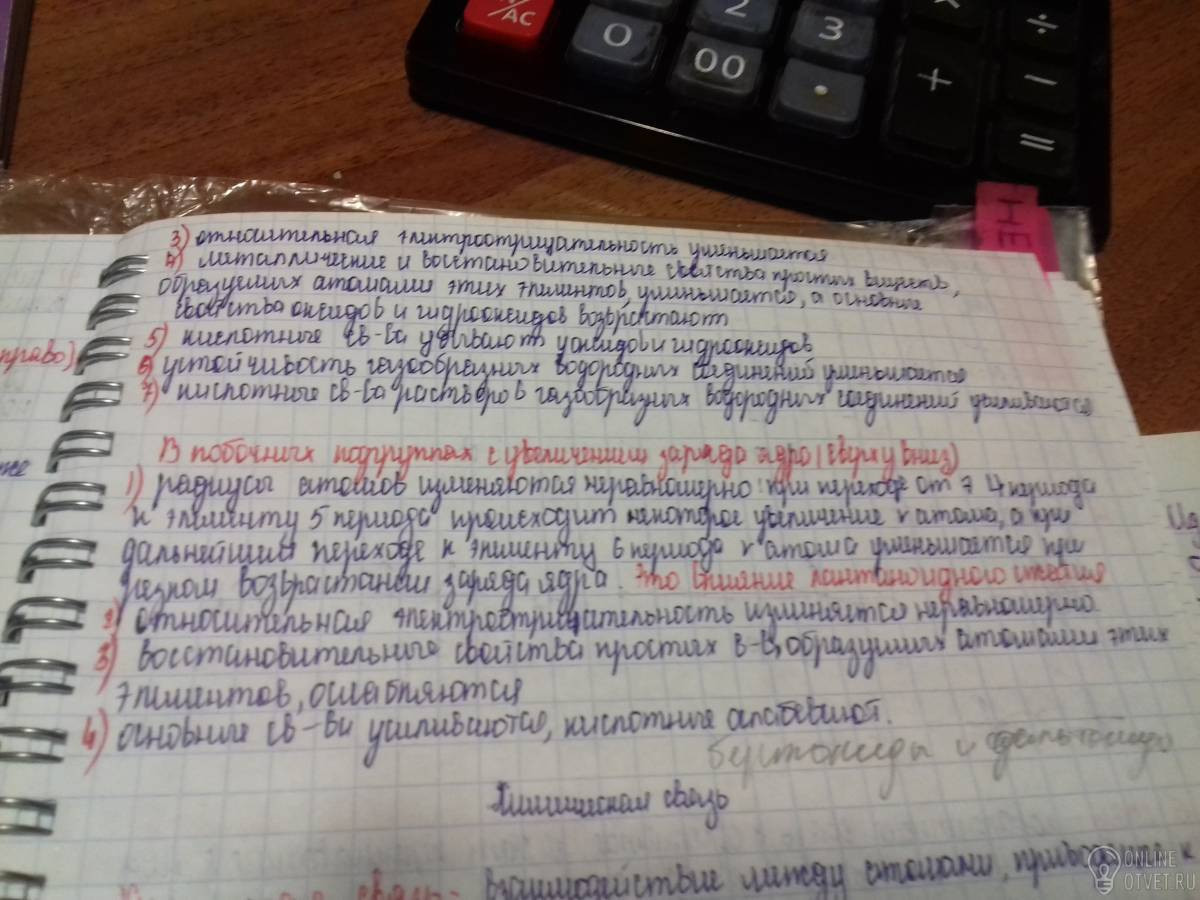 AC
0
00
2
3
.
×
÷
+
−
=
НЕ
3) относительная электроотрицательность уменьшается
4) металлические и восстановительные свойства простых веществ,
образуемых атомами этих элементов, уменьшается, а основные
свойства оксидов и гидрооксидов возврастают
5) кислотные св-ва убывают у оксидов и гидрооксидов
6) устойчивость газообразных водородных соединений уменьшается
7) кислотные св-ва растворов газообразных водородных соединений усиливаются
право)
В побочных подгруппах с увеличением заряда ядра (сверху вниз)
1) радиусы атомов изменяются неравномерно: при переходе от э 4 периода
к элементу 5 периода происходит некоторое увеличение r атома, а при
дальнейшим переходе к элементу 6 периода r атома уменьшается при
возврастании заряда ядра. Это влияние лантаноидного сжатия
2) относительная электроотрицательность изменяется неравномерно.
3) восстановительные свойства простых в-в, образуемых атомами этих
элементов, ослабляются
4) основные св-ва усиливаются, кислотные ослабевают.
бертолиды и дальтониды
Химическая связь
связь - взаимодействие между атомами,
ONLINE
OTVET.RU